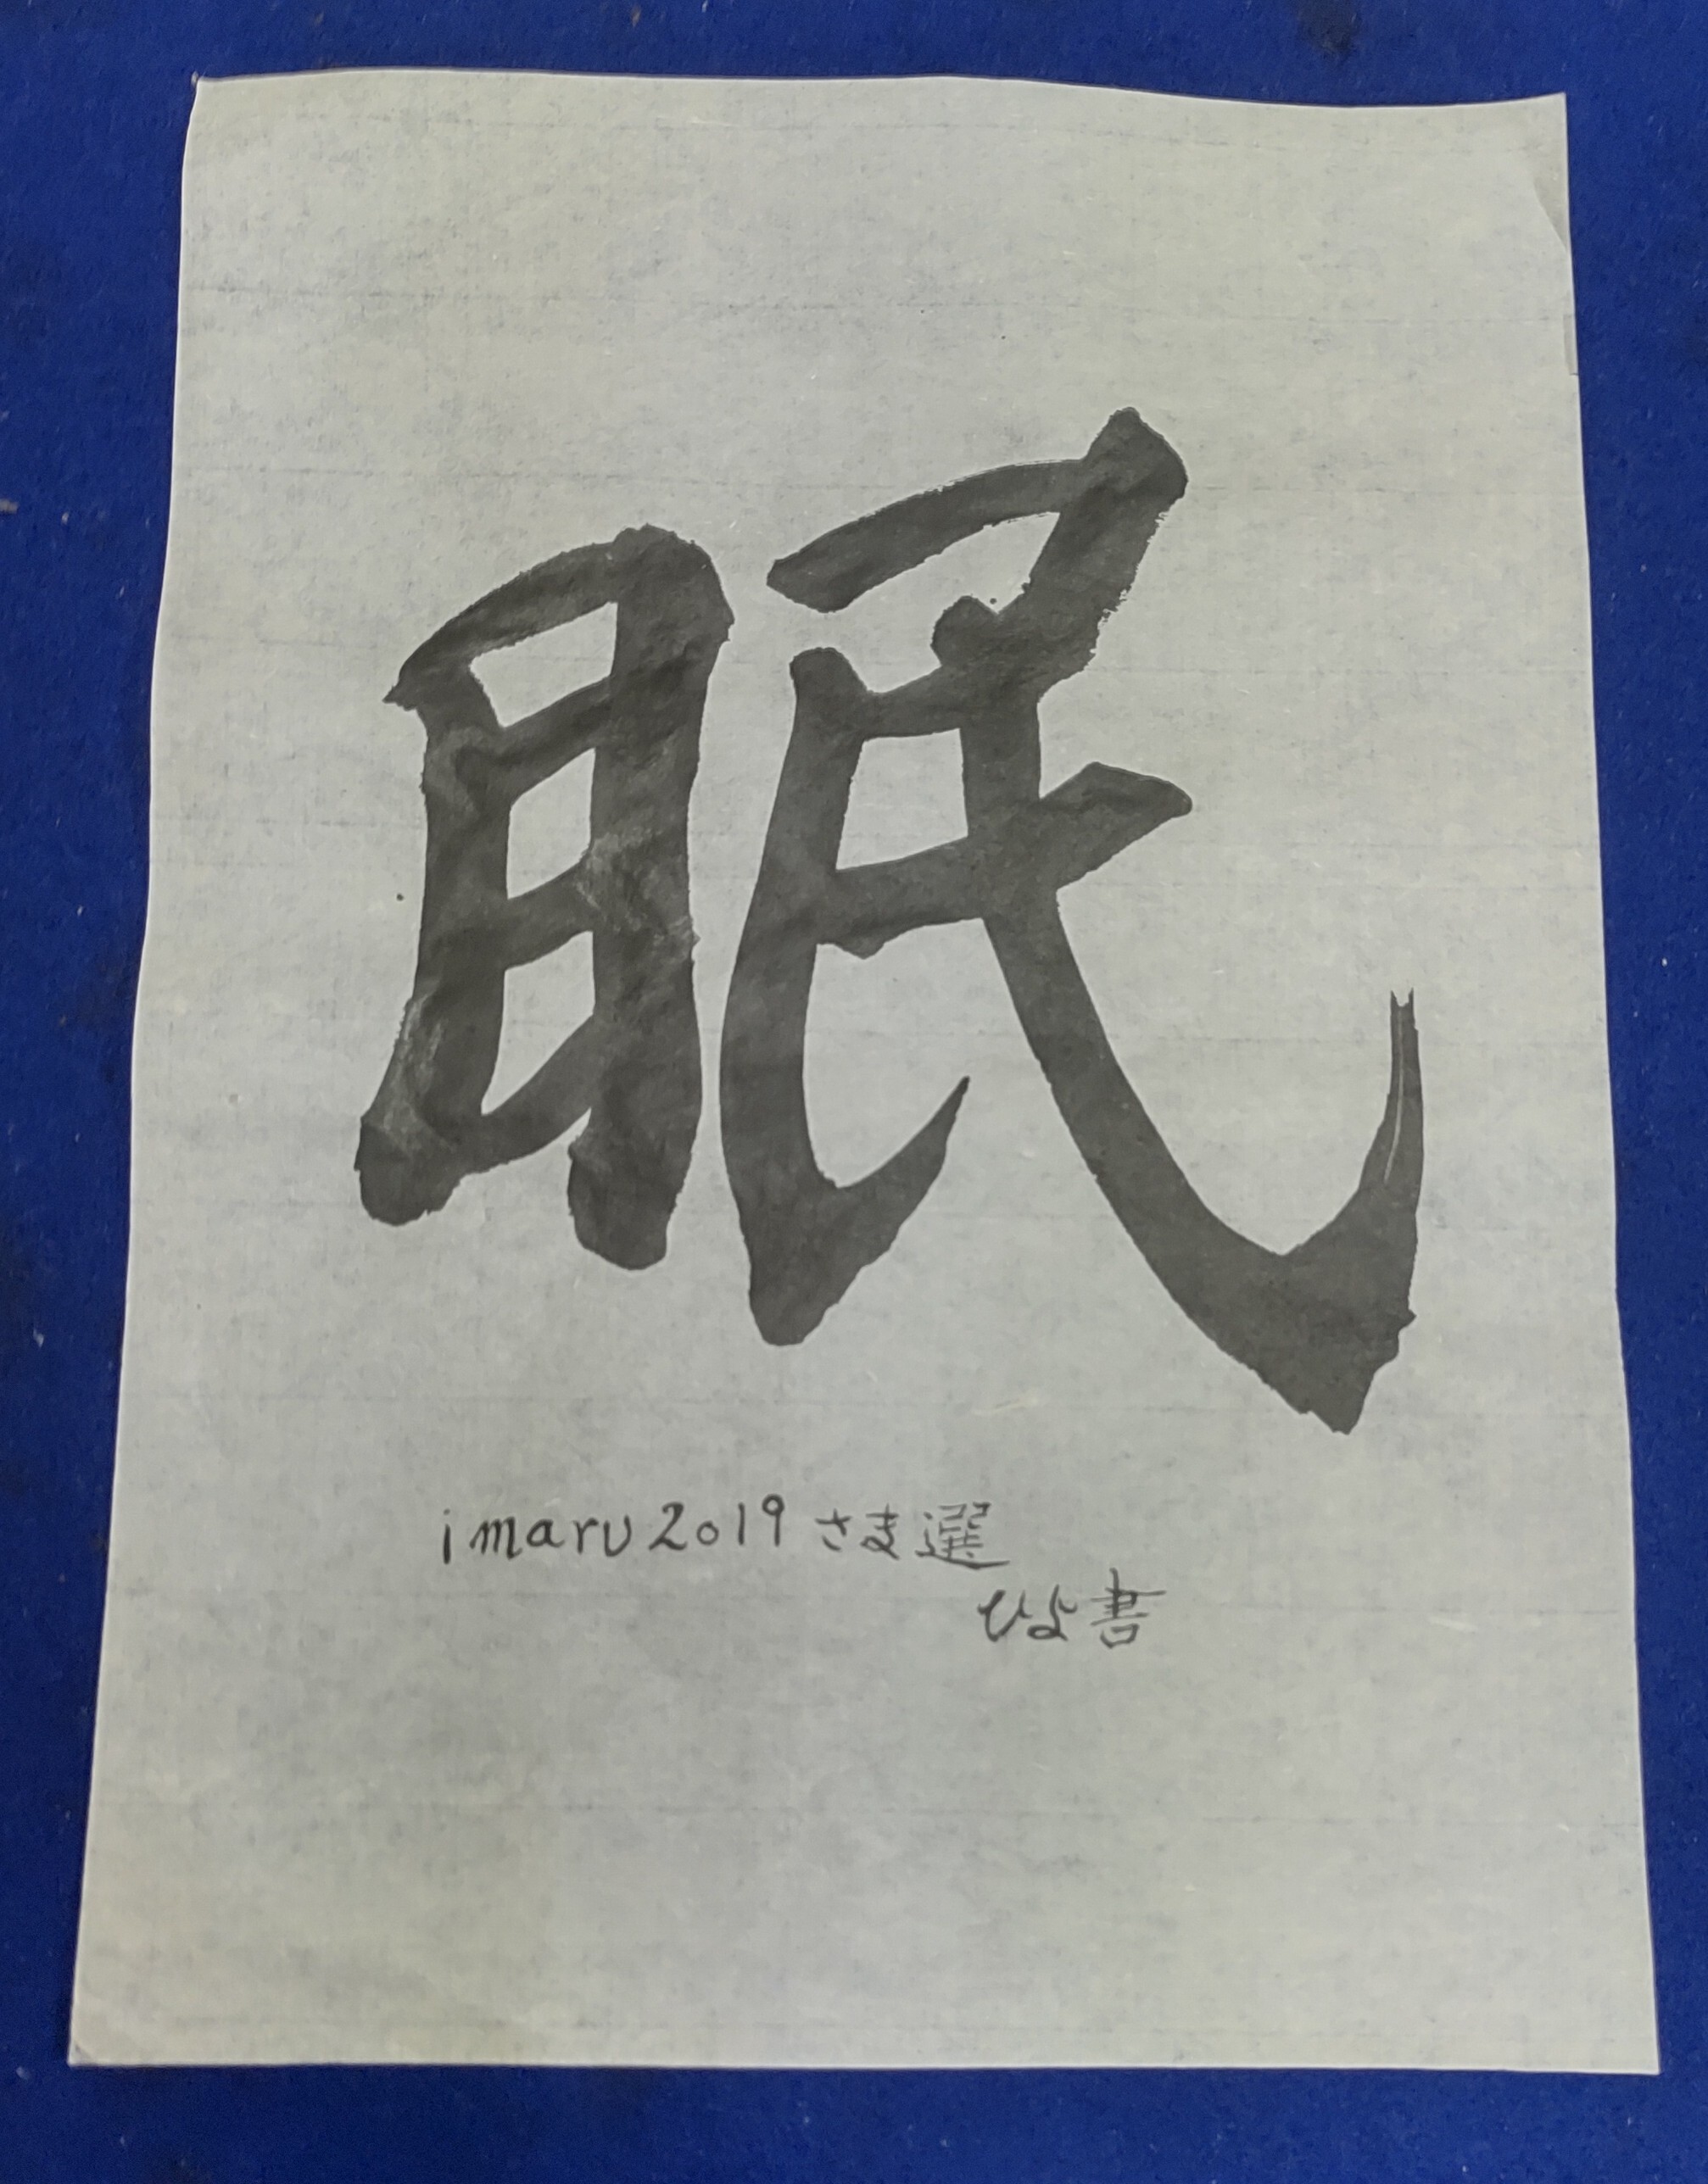 眠
imaru2019さま選
ひよ書